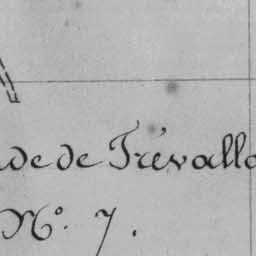 de de Trévall
N.º 7.